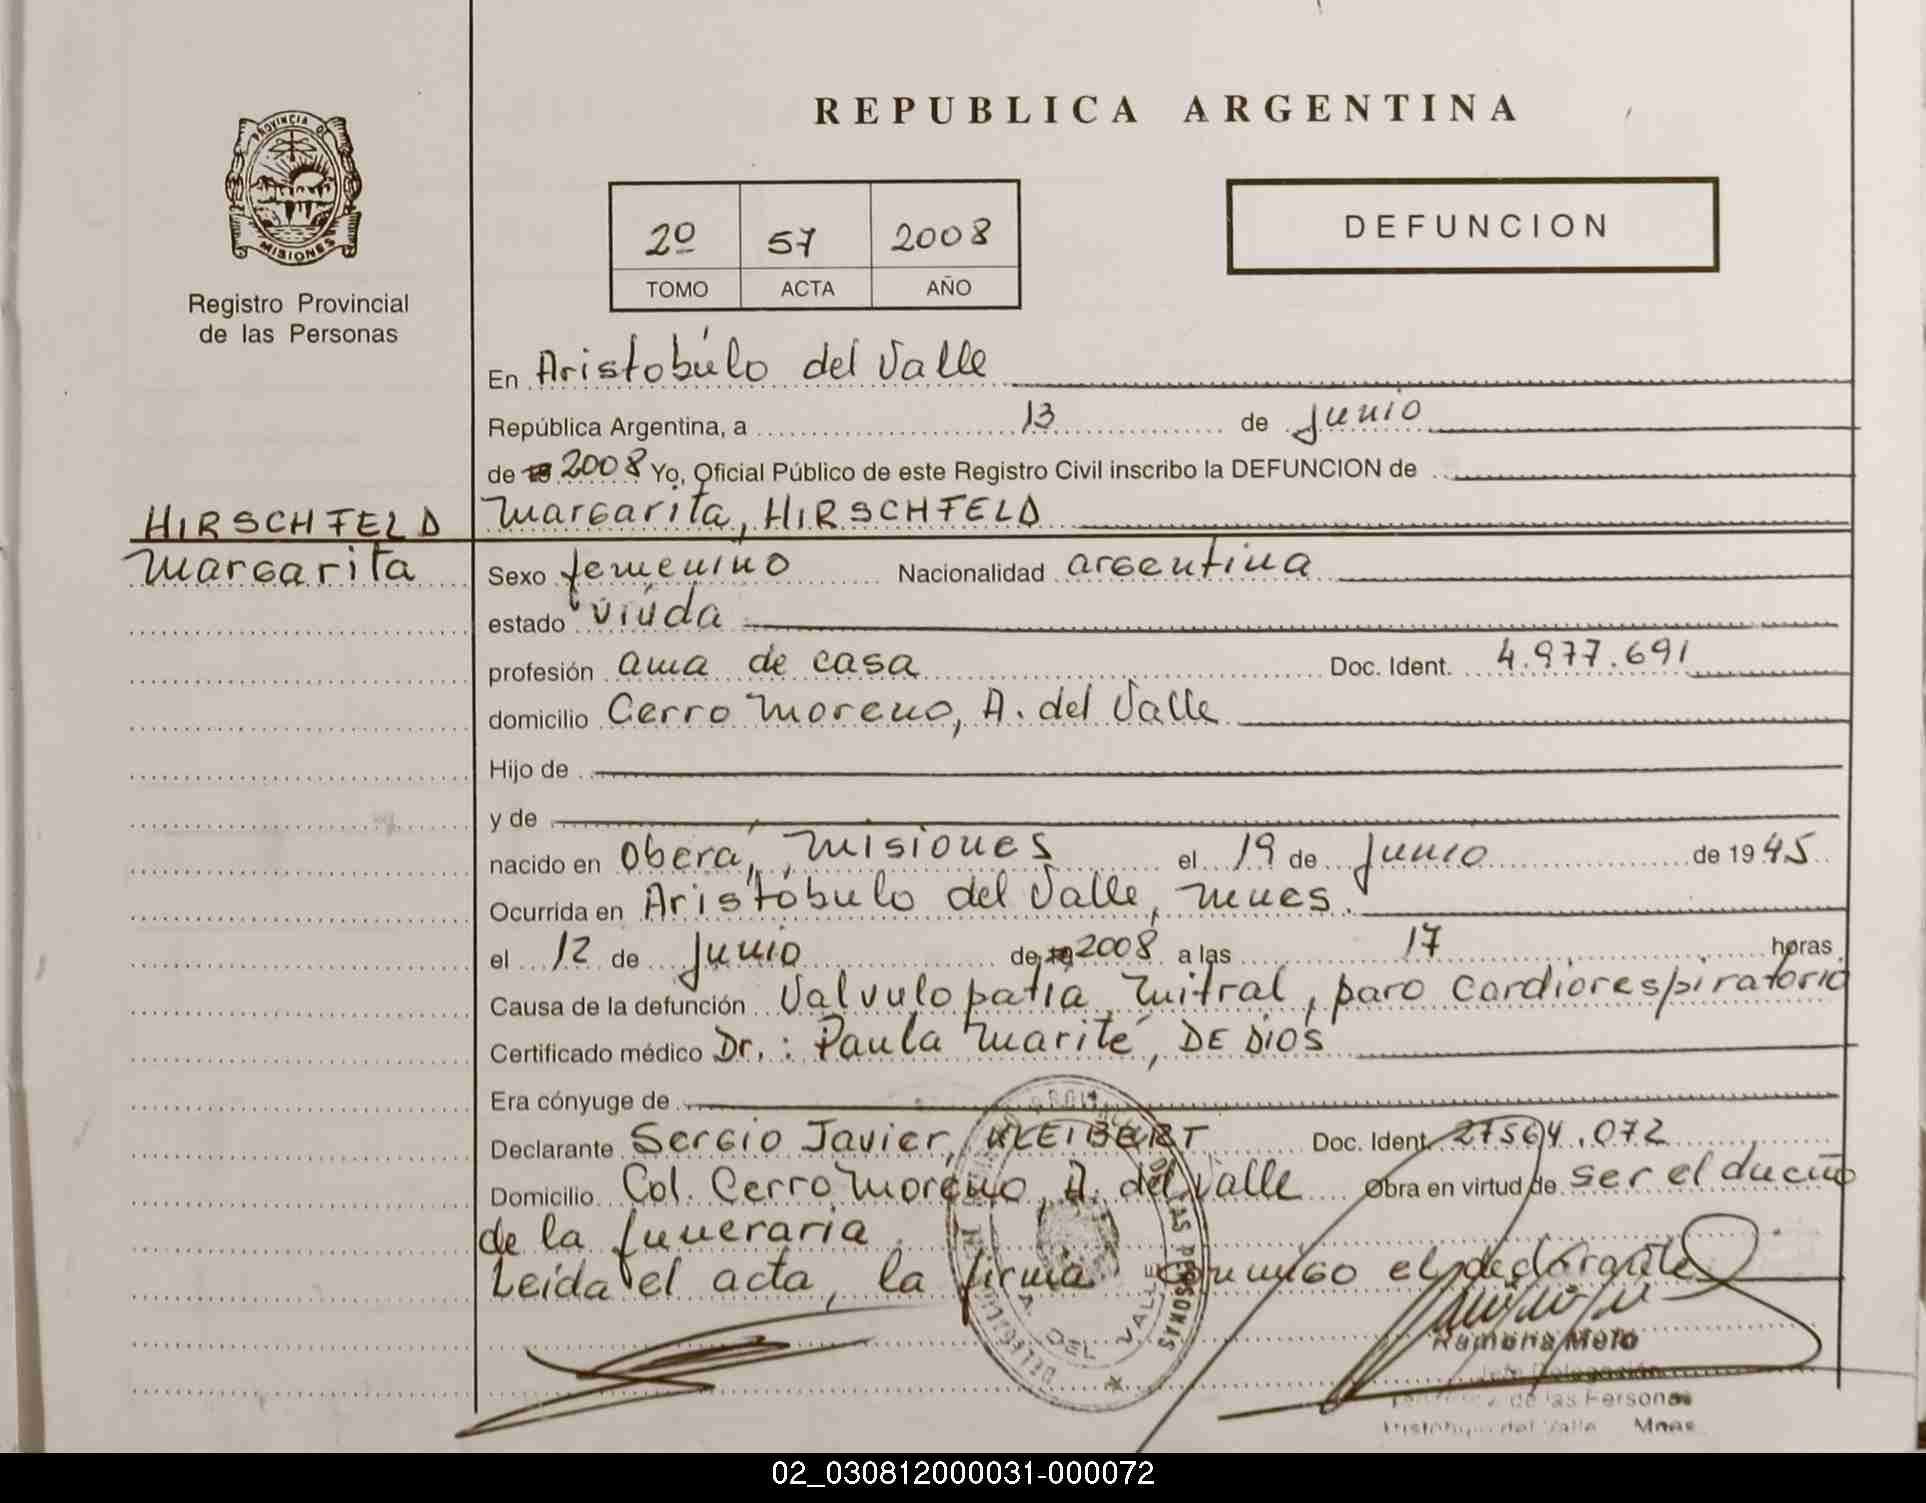 REPUBLICA ARGENTINA
PROVINCIA DE
MISIONES
Registro Provincial
de las Personas
2º 57 2008
TOMO ACTA AÑO
DEFUNCION
En Aristobúlo del Valle
República Argentina, a 13 de Junio
de 2008 Yo, Oficial Público de este Registro Civil inscribo la DEFUNCION de
HIRSCHFELD
Margarita
Margarita, HIRSCHFELD
Sexo femenino Nacionalidad argentina
estado viúda
profesión ama de casa Doc. Ident. 4.977.691
domicilio Cerro Moreno, A. del Valle
Hijo de
y de
nacido en Oberá, Misiones el 19 de Junio de 1945
Ocurrida en Aristóbulo del Valle, Mnes.
el 12 de Junio de 2008 a las 17 horas
Causa de la defunción Valvulopatia Mitral, paro Cardiorespiratorio
Certificado médico Dr.: Paula Marité, DE DIOS
Era cónyuge de
Declarante Sergio Javier, KLEIBERT Doc. Ident. 27564.072
Domicilio Col. Cerro Moreno, A. del Valle Obra en virtud de ser el dueño
de la funeraria
Leída el acta, la firma conmigo el declarante
DEL VALLE
LAS PERSONAS
Ramona Melo
Jefe Delegación
de las Personas
Aristóbulo del Valle Mnes
02_030812000031-000072